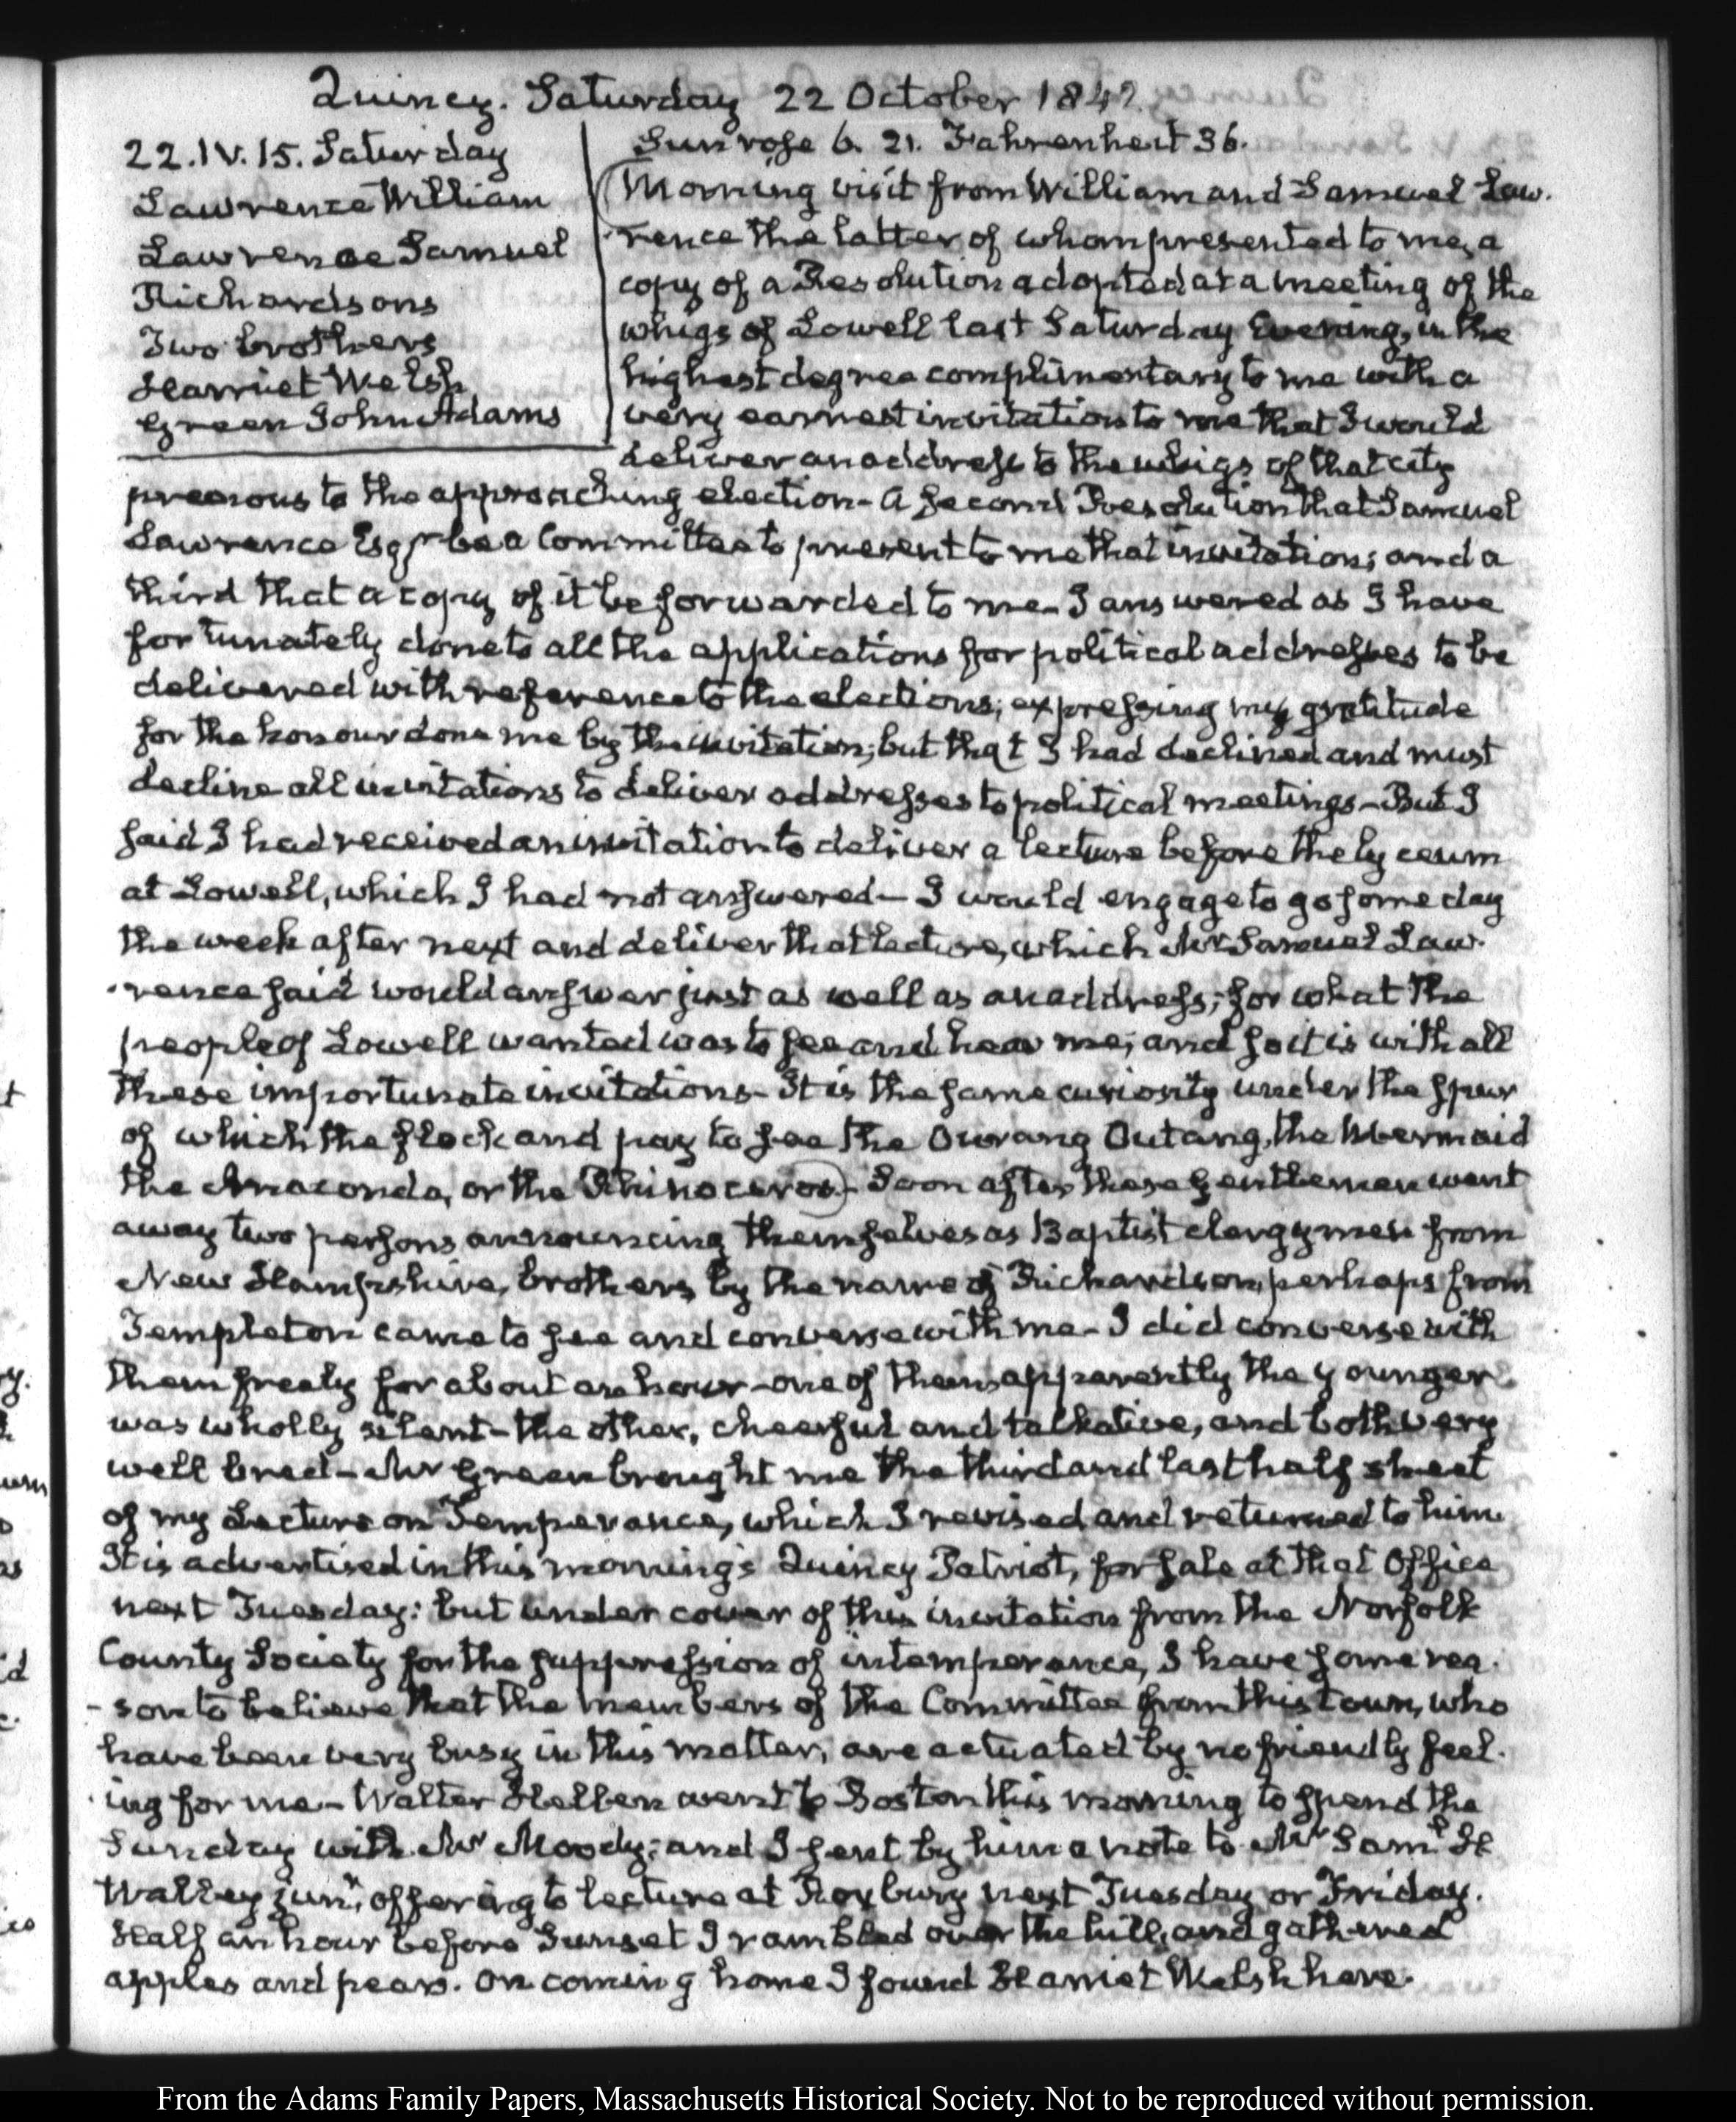 Quincy. Saturday 22 October 1842.
22. IV. 15. Saturday
Lawrence William
Lawrence Samuel
Richardsons
Two brothers
Harriet Welsh
Green John Adams
Sun rose 6. 21. Fahrenheit 36.
Morning visit from William and Samuel Law-
-rence the latter of whom presented to me, a
copy of a Resolution adopted at a meeting of the
whigs of Lowell last Saturday Evening, in the
highest degree complimentary to me with a
very earnest invitation to me that I would
deliver an address to the whigs of that city
previous to the approaching election - A second Resolution that Samuel
Lawrence Esqr be a Committee to present to me that invitation; and a
third that a copy of it be forwarded to me - I answered as I have
fortunately done to all the applications for political addresses to be
delivered with reference to the elections; expressing my gratitude
for the honour done me by the invitation; but that I had declined and must
decline all invitations to deliver addresses to political meetings - But I
said I had received an invitation to deliver a lecture before the lyceum
at Lowell, which I had not answered - I would engage to go some day
the week after next and deliver that lecture, which Mr Samuel Law-
-rence said would answer just as well as an address; for what the
people of Lowell wanted was to see and hear me; and so it is with all
these importunate invitations - It is the same curiosity under the spur
of which the flock and pay to see the Ourang Outang, the Mermaid
the Anaconda, or the Rhinoceros - Soon after these gentlemen went
away two persons announcing themselves as Baptist clergymen from
New Hampshire, brothers by the name of Richardson, perhaps from
Templeton came to see and converse with me - I did converse with
them freely for about an hour - one of them, apparently the younger
was wholly silent - the other, cheerful and talkative, and both very
well bred - Mr Green brought me the third and last half sheet
of my Lecture on Temperance, which I revised and returned to him.
It is advertised in this morning's Quincy Patriot, for sale at that Office
next Tuesday: but under cover of this invitation from the Norfolk
County Society for the suppression of intemperance, I have some rea-
-son to believe that the members of the Committee from this town, who
have been very busy in this matter, are actuated by no friendly feel-
-ing for me - Walter Hellen went to Boston this morning to spend the
Sunday with Mr Moody; and I sent by him a note to Mr Saml H
Walley junr, offering to lecture at Roxbury next Tuesday or Friday.
Half an hour before Sunset I rambled over the hill, and gathered
apples and pears. On coming home I found Harriet Welsh here.
From the Adams Family Papers, Massachusetts Historical Society. Not to be reproduced without permission.